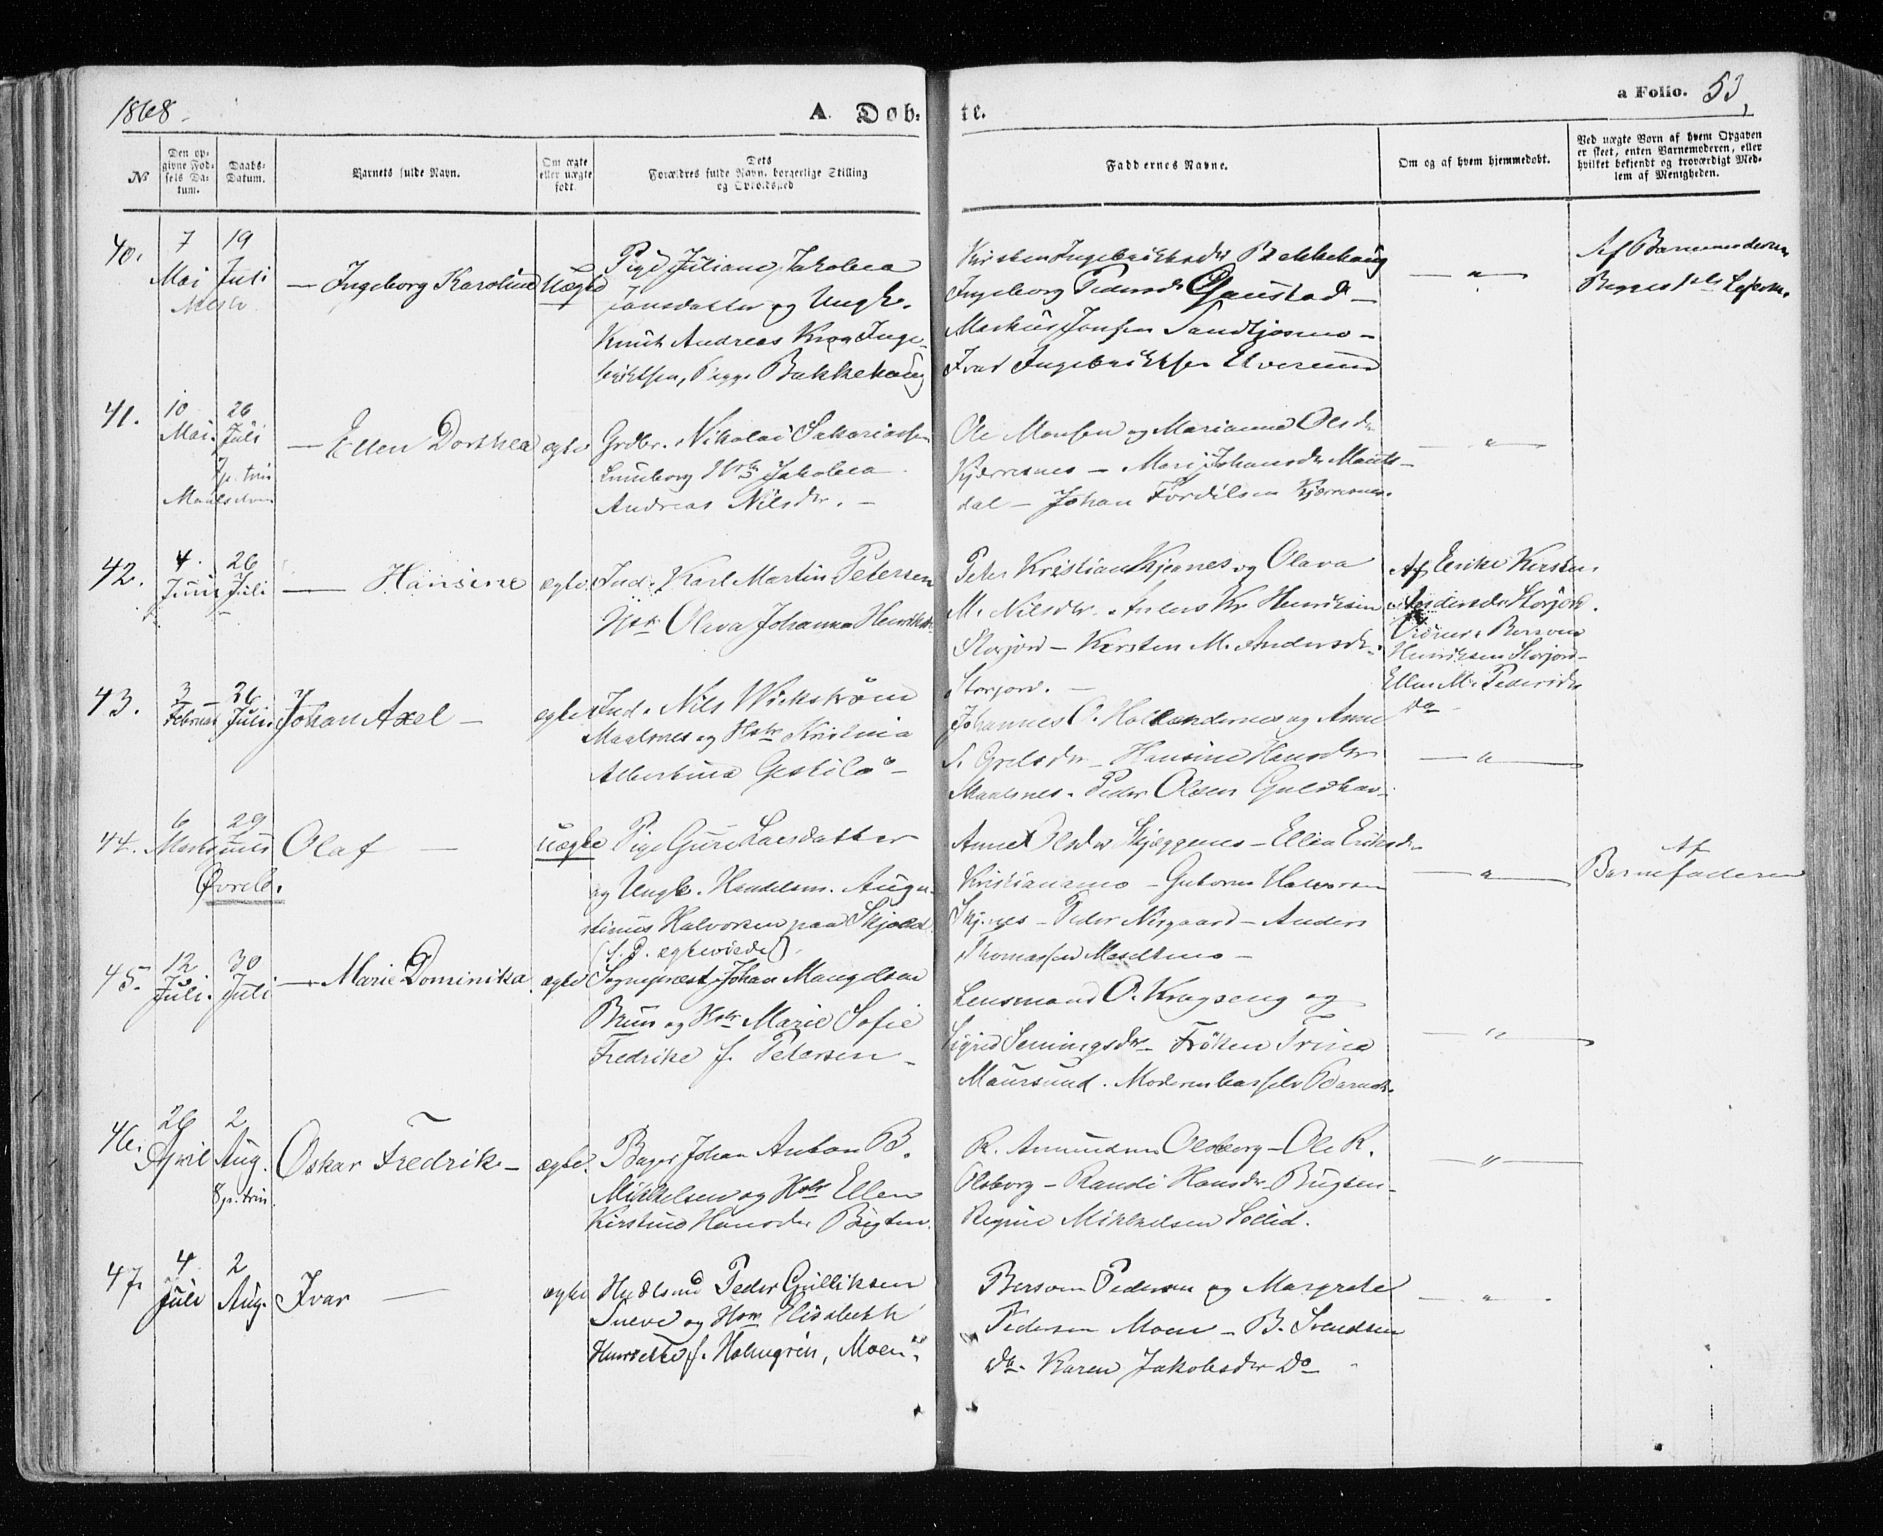 1868.
A. Døbte.
a Folio. 53,
No
Den opgivne Fødsels Datum.
Daabs-Datum.
Barnets fulde Navn.
Om ægte eller uægte født.
Dets Forældres fulde Navn, borgerlige Stilling og Opholdssted
Faddernes Navne.
Om og af hvem hjemmedøbt.
Ved uægte Børn af hvem Opgaven er skeet, enten Barnemoderen, eller hvilket bekjendt og troværdigt Medlem af Menigheden.
40.
7 Mai
19 Juli
— Ingeborg Karoline
Uægte
Pige Juliane Jakobea
Jonsdatter og Ungk.
Knut Andreas Krog Inge-
briktsen, Begge Bakkehaug
Kirsten Ingebriktsdr Bakkehaug
Ingeborg Pedersdr Gaustad —
Markus Jonsen Sandtjosmo —
Ivar Ingebriktsen Elverum
— " —
Af Barnemoderen
Begges 1ste Leierm.
41.
10 Mai.
26 Juli
7 p. trin
Maalselven
— Ellen Dorthea
ægte
Grdbr. Nikolai Sakariassen
Luneborg Hstr Jakobea
Andrea Nilsdr. —
Ole Monsen og Marianna Olsdr
Kjærresnes — Mari Johansdr Maals-
dal — Johan Fordilsen Kjærresnes.
— " —
42.
4. Juni
26 Juli
— Hansine
ægte
Ind. Karl Martin Petersen
Hstr. Olava Johanna Henriksdr
Peter Kristian Kjernes og Olava
M. Nilsdr. Anders Kr Henriksen
Storjord — Kirsten M. Andersdr
Storjord. —
Af Enke Kirsten
Andersdr Storjord.
Vidner. Bersvend
Henriksen Storjord —
Ellen M. Pedersdr
Do
43.
3 Februar
26 Juli
Johan Axel —
ægte
Ind. Nils Wickstrøm
Maalsnes og Hstr Kristina
Albertina Geskila —
Johannes O. Hollendernes og Anne
S. Grelsdr — Hansine Hansdr
Maalsnes. Peder Olsen Guldhav.
— " —
44.
6 Marts
29 Juni
Øvreb.
Olaf —
uægte
Pige Guri Larsdatter
og Ungk. Handelsm. Augu-
stinus Halvorsen paa Skjold
(S. P. ægteviede).
Anne Olsdr Skjæggenes — Ellen Eriksdr
Kristiansmo — Guttorm Halvorsen
Skjgnes — Peder Nergaard — Anders
Thomassen Mo —
— " —
Af
Barnefaderen
45.
12 Juli.
30 Juli
— Marie Dominika
ægte
Sognepræst Johan Mangelsen
Brun og Hstr Marie Sofie
Fredrike f. Petersen —
Lensmand O. Krogseng og
Sigrid Semingsdr — Frøken Trine
Maursund. Moderen bar selv Barnet.
— " —
46.
26 April
2 Aug.
8 p. trin.
Oskar Fredrik —
ægte
Bager Johan Anton B.
Mikkelsen og Hstr Ellen
Kirstine Hansdr Bugten.
R. Amundsen Olsborg — Ole R.
Olsborg — Randi Hansdr Bugten —
Regine Mikkelsen Sollid.
— " —
47.
4. Juli
2 Aug.
Ivar —
ægte
Hjulmd Peder Gulliksen
Sneve og Hstr Elisabeth
Henriette f. Holmgren, Moen.
Bersven Pedersen og Margrete
Pedersen Moen — B. Svendsen
Do. Karen Jakobsdr Do
— " —